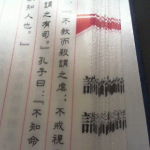 不教而殺謂之虐；不戒視
謂之有司。』孔子曰：『不知命
知人也。』